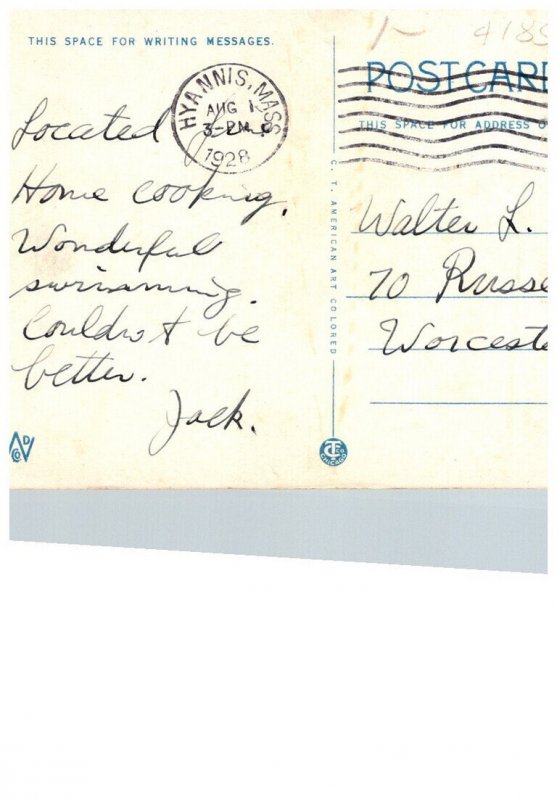 THIS SPACE FOR WRITING MESSAGES.
HYANNIS, MASS
AUG 1
3-PM
1928
Located
Home cooking.
Wonderful
swimming.
Couldn't be
better.
Jack.
C. T. AMERICAN ART COLORED
CHICAGO
4185
POST CARD
THIS SPACE FOR ADDRESS O
Walter L.
70 Russe
Worceste